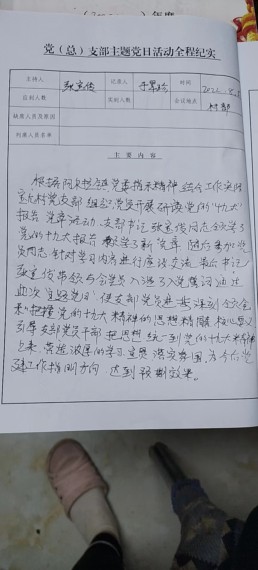 年度
党（总）支部主题党日活动全程纪实
主持人 张宝俊 记录人 于 时间 2022.
应到人数 实到人数 会议地点 村部
缺席人员及原因
列席人员名单
主要内容
根据 党委指示精神 结合工作实际
村党支部 组织党员开展研读党的“十九大”
报告 党章活动. 支部书记 张宝俊同志领学了
党的十九大报告 学了新党章 随后参加党
员同志 针对学习内容进行座谈交流 最后书记
张宝俊带领与会党员 入党誓词 通过
此次“主题党日” 使支部党员进一步深刻领会全
来把握党的十九大精神的思想精髓 核心要义
引导支部党员干部 把思想 统一到党的十九大精神
上来. 营造浓厚的学习宣贯落实氛围, 为今后党
建工作指明方向 达到预期效果。